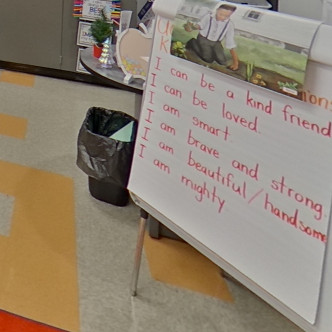 I can be a kind friend
I can be loved.
I am smart.
I am brave and strong
I am beautiful/handsome
I am mighty